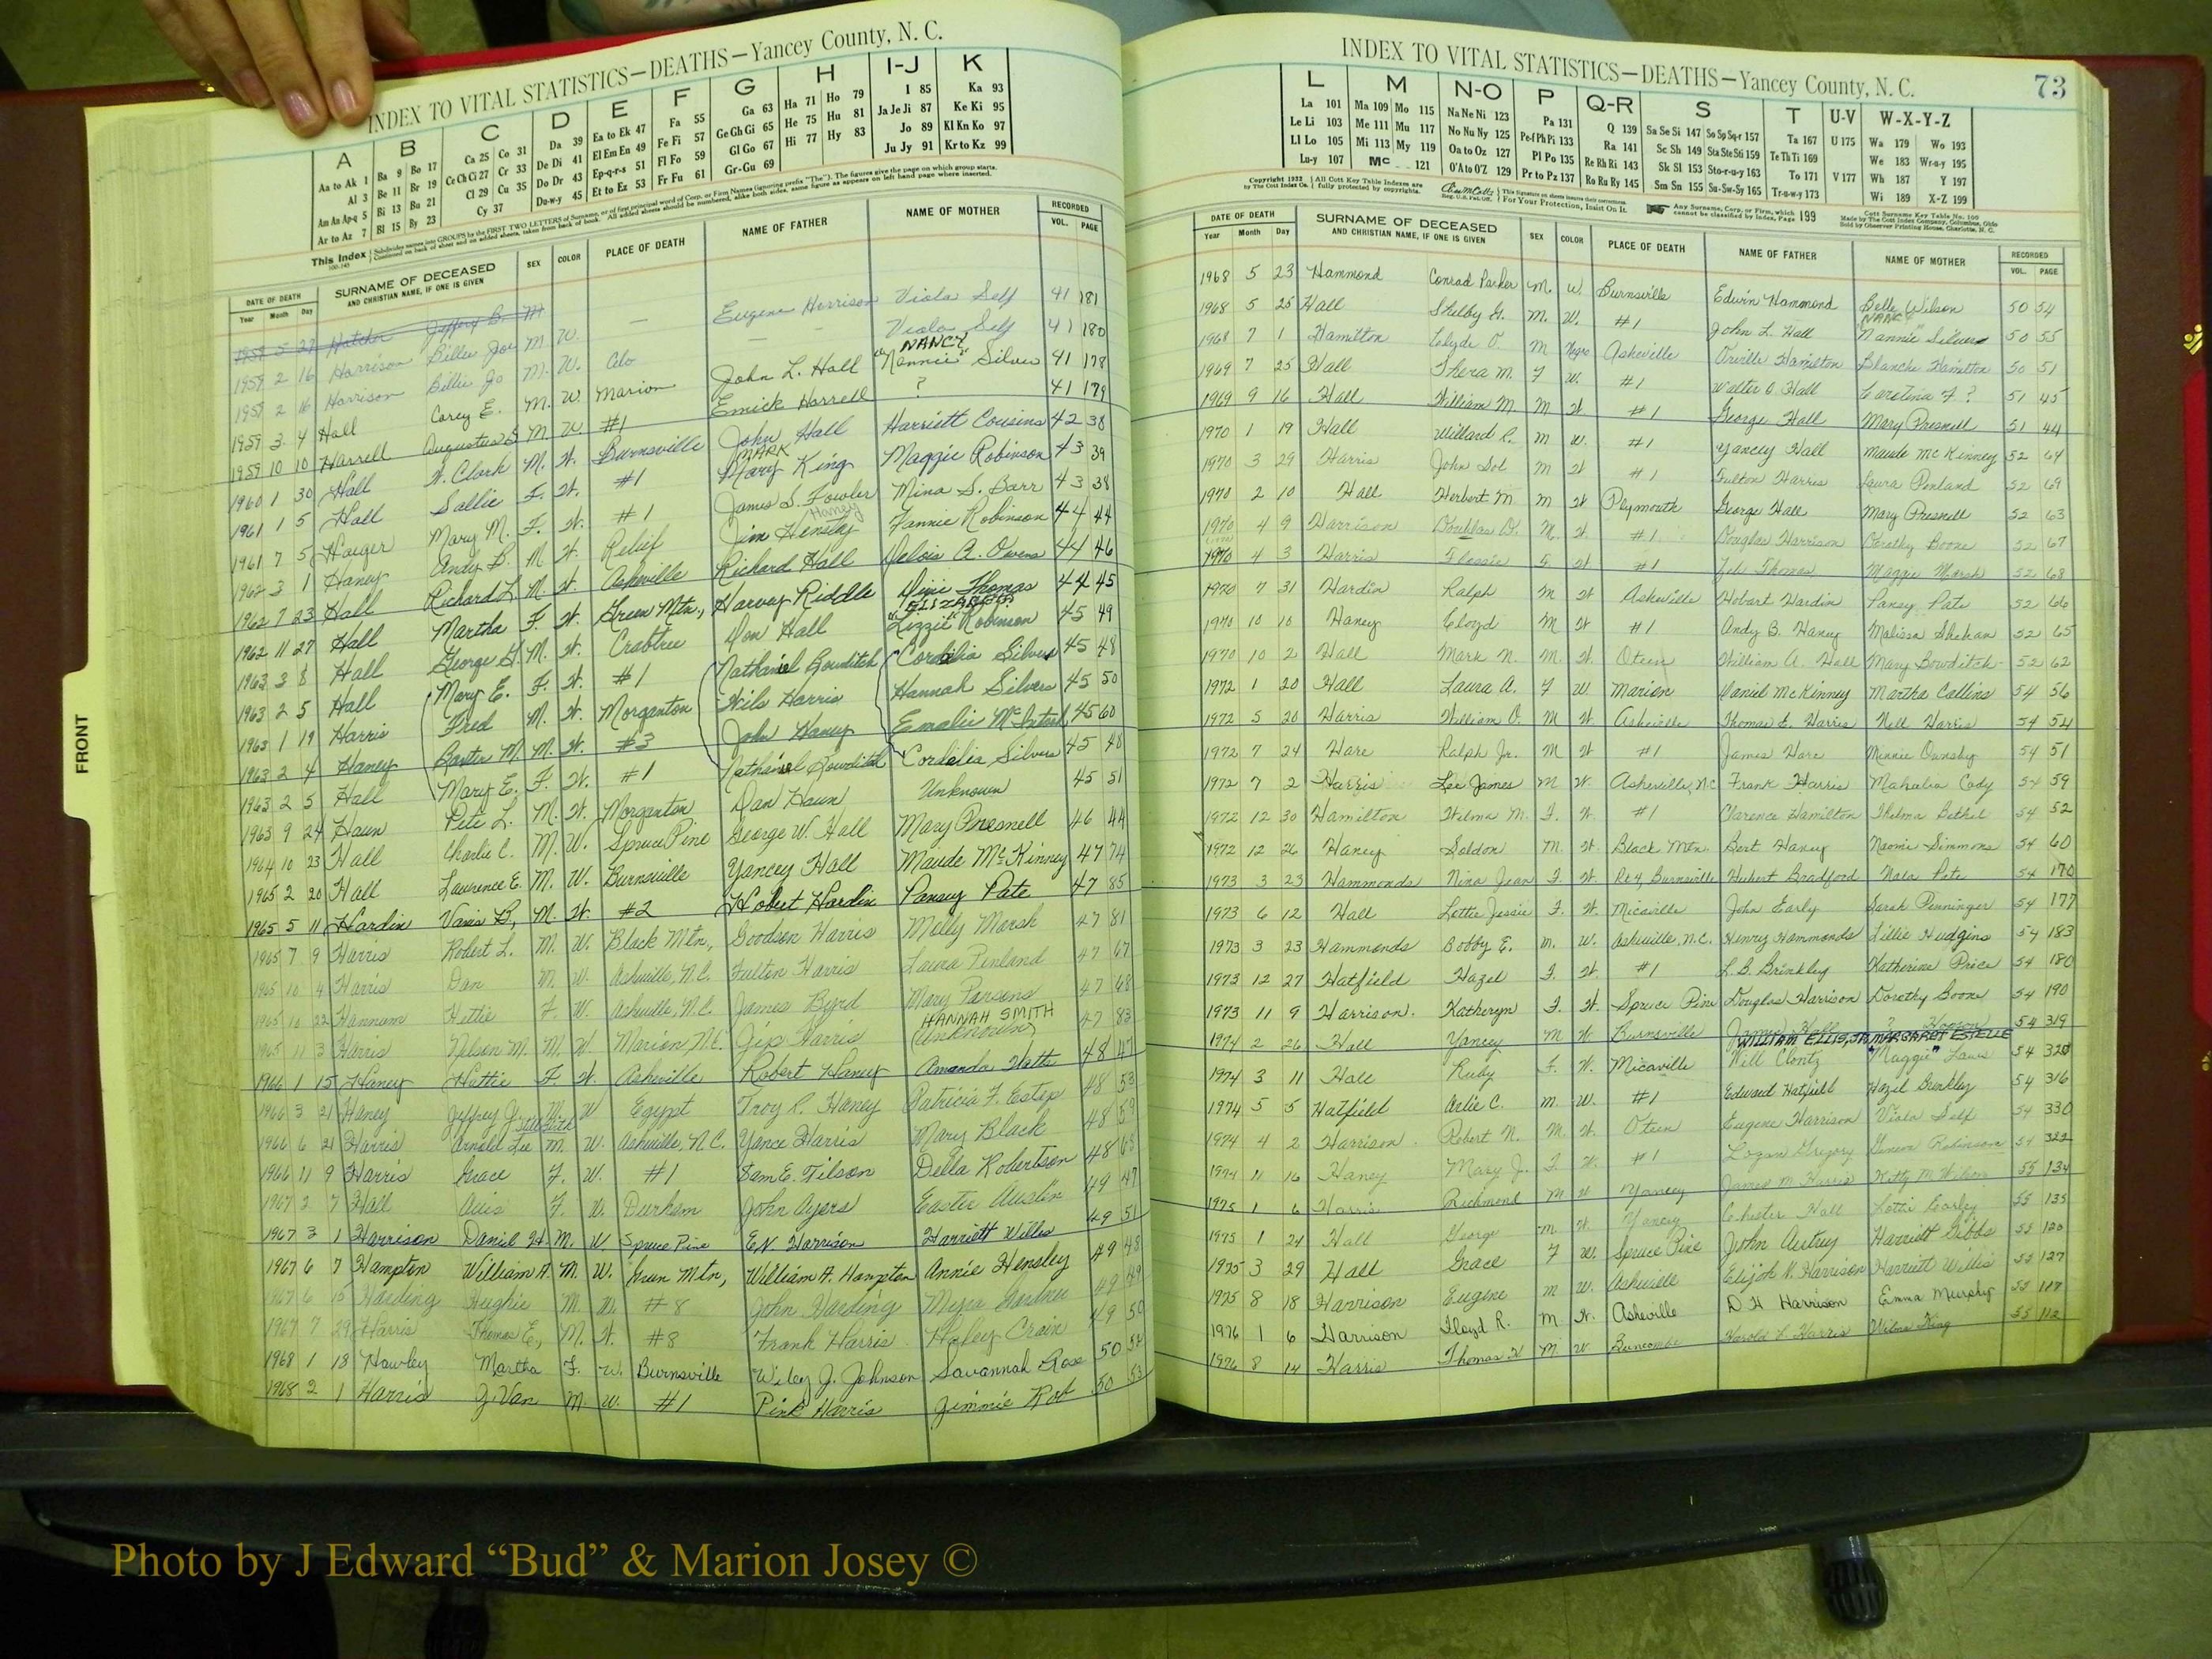 INDEX TO VITAL STATISTICS—DEATHS—Yancey County, N. C.
A B C D E F G H I-J K
Aa to Ak 1 Ba 9 Bo 17 Ca 25 Co 31 Da 39 Ea to Ek 47 Fa 55 Ga 63 Ha 71 Ho 79 I 85 Ka 93
Al 3 Be 11 Br 19 Ce Ch Ci 27 Cr 33 De Di 41 El Em En 49 Fe Fi 57 Ge Gh Gi 65 He 75 Hu 81 Ja Je Ji 87 Ke Ki 95
Am An Ap-q 5 Bi 13 Bu 21 Cl 29 Cu 35 Do Dr 43 Ep-q-r-s 51 Fl Fo 59 Gl Go 67 Hi 77 Hy 83 Jo 89 Kl Kn Ko 97
Ar to Az 7 Bl 15 By 23 Cy 37 Du-w-y 45 Et to Ez 53 Fr Fu 61 Gr-Gu 69 Ju Jy 91 Kr to Kz 99
This Index
DATE OF DEATH SURNAME OF DECEASED AND CHRISTIAN NAME, IF ONE IS GIVEN SEX COLOR PLACE OF DEATH NAME OF FATHER NAME OF MOTHER RECORDED
Year Month Day VOL. PAGE
Jeffery B. M
1959 2 16 Harrison Billie Joe M W. — Eugene Harrison Viola Self 41 181
1959 2 16 Harrison Billie Jo M. W. — Viola Self 41 180
1959 3 4 Hall Carey E. M. W. John L. Hall NANCY "Nannie" Silver 41 178
1959 10 10 Harrell Augustus M W. Marion Harrell ? 41 179
1960 1 30 Hall W. Clark M. W. #1 John Hall Harriett Cousins 42 38
1961 1 5 Hall Sallie F. W. Burnsville MARK King Maggie Robinson 43 39
1961 7 5 Mary M. F. W. #1 James S. Fowler Mina S. Barr 43 38
1962 3 1 Haney Andy B. M W. #1 Jim Hensley Haney Fannie Robinson 44 44
1962 7 23 Hall Richard L. M. W. Relief Richard Hall Delois A. Owens 44 46
1962 11 27 Hall Martha F. W. Asheville Harvey Riddle Dixie Thomas 44 45
1963 3 8 Hall George M. W. Green Mtn., Don Hall ELIZABETH "Lizzie" Robinson 45 49
1963 2 5 Hall Mary E. F. W. Crabtree Nathaniel Bowditch Cordelia Silver 45 48
1963 1 19 Harris Fred M. W. #1 Harris Hannah Silvers 45 50
1963 2 4 Haney Baxter M. M. W. Morganton John Haney Emalie McIntosh 45 60
1963 2 5 Hall Mary E. F. W. #3 Nathaniel Bowditch Cordelia Silvers 45 48
1963 9 24 Haun Pete L. M. W. #1 Dan Haun Unknown 45 51
1964 10 23 Hall Charlie C. M. W. Morganton George W. Hall Mary Presnell 46 44
1965 2 20 Hall Lawrence E. M. W. Spruce Pine Yancey Hall Maude McKinney 47 74
1965 5 11 Hardin B. M. W. Burnsville Hobert Hardin Pansy Pate 47 85
1965 7 9 Harris Robert L. M. W. #2 Goodson Harris Molly Marsh 47 81
1965 10 4 Harris Dan M. W. Black Mtn., Fulton Harris Laura Penland 47 67
1965 10 22 Hannum Hettie F. W. Asheville, N.C. James Byrd Mary Parsons 47 68
1965 11 3 Harris Nelson M. M. W. Marion, N.C. Harris HANNAH SMITH (Unknown) 47 83
1966 1 15 Haney Hattie F. W. Asheville Robert Haney Amanda 48 47
1966 3 21 Haney Jeffrey M W Egypt Troy R. Haney Patricia F. Estep 48 53
1966 6 21 Harris Arnold Lee M. W. Asheville, N.C. Yance Harris Mary Black 48 59
1966 11 9 Harris Grace F. W. #1 Sam E. Tilson Della Robertson 48 68
1967 2 7 Hall F. W. Durham John Ayers Easter Austin 49 47
1967 3 1 Harrison Daniel H. M. W. Spruce Pine E.N. Harrison Harriett Willis 49 51
1967 6 7 Hampton William A. M. W. Green Mtn, William A. Hampton Annie Hensley 49 48
1967 6 15 Harding Hughie M. W. #8 John Harding Gardner 49 49
1967 7 29 Harris Thomas E., M. W. #8 Frank Harris Crain 49 50
1968 1 18 Hawley Martha F. W. Burnsville Wiley J. Johnson Savannah Rose 50 52
1968 2 1 Harris Z. Van M. W. #1 Pink Harris Jimmie 50 53
FRONT
INDEX TO VITAL STATISTICS—DEATHS—Yancey County, N. C. 73
L M N-O P Q-R S T U-V W-X-Y-Z
La 101 Ma 109 Mo 115 Na Ne Ni 123 Pa 131 Q 139 Sa Se Si 147 So Sp Sq-r 157 Ta 167 U 175 Wa 179 Wo 193
Le Li 103 Me 111 Mu 117 No Nu Ny 125 Pe-f Ph Pi 133 Ra 141 Sc Sh 149 Sta Ste Sti 159 Te Th Ti 169 We 183 Wr-u-y 195
Ll Lo 105 Mi 113 My 119 Oa to Oz 127 Pl Po 135 Re Rh Ri 143 Sk Sl 153 Sto-r-u-y 163 To 171 V 177 Wh 187 Y 197
Lu-y 107 Mc 121 O'A to O'Z 129 Pr to Pz 137 Ro Ru Ry 145 Sm Sn 155 Su-Sw-Sy 165 Tr-u-w-y 173 Wi 189 X-Z 199
Copyright 1932 All Cott Key Table Indexes are fully protected by copyrights. For Your Protection, Insist On It. Any Surname, Corp. or Firm, which cannot be classified by Index, Page 199
DATE OF DEATH SURNAME OF DECEASED AND CHRISTIAN NAME, IF ONE IS GIVEN SEX COLOR PLACE OF DEATH NAME OF FATHER NAME OF MOTHER RECORDED
Year Month Day VOL. PAGE
1968 5 23 Hammond Conrad Parker M. W. Burnsville Edwin Hammond Belle Wilson 50 54
1968 5 25 Hall Shelby G. M. W. #1 John L. Hall NANCY Nannie Silver 50 55
1968 7 1 Hamilton Clyde O. M Negro Asheville Orville Hamilton Blanche Hamilton 50 51
1969 7 25 Hall Thera M. F W. #1 Walter O. Hall Carolina F. ? 51 45
1969 9 16 Hall William M. M W. #1 George Hall Mary Presnell 51 44
1970 1 19 Hall Willard R. M W. #1 Yancey Hall Maude McKinney 52 64
1970 3 29 Harris John Sol M W #1 Fulton Harris Laura Penland 52 69
1970 2 10 Hall Herbert M. M W Plymouth George Hall Mary Presnell 52 63
1970 4 9 Harrison Douglas D. M. W. #1 Douglas Harrison Dorothy Boone 52 67
1970 4 3 Harris Flossie F. W #1 Thomas Maggie Marsh 52 68
1970 7 31 Hardin Ralph M W Asheville Hobart Hardin Pansy Pate 52 66
1970 10 10 Haney Cloyd M W #1 Andy B. Haney Malissa Shehan 52 65
1970 10 2 Hall Mark N. M. W. Oteen William A. Hall Mary Bowditch 52 62
1972 1 20 Hall Laura A. F W. Marion Daniel McKinney Martha Collins 54 56
1972 5 20 Harris William O. M W. Asheville Thomas E. Harris Nell Harris 54 54
1972 7 24 Hare Ralph Jr. M W #1 James Hare Minnie Ownsby 54 51
1972 7 2 Harris Lee James M W. Asheville, N.C. Frank Harris Mahalia Cody 54 59
1972 12 30 Hamilton Wilma M. F. W. #1 Clarence Hamilton Thelma Bethel 54 52
1972 12 26 Haney Soldon M. W. Black Mtn. Bert Haney Naomi Simmons 54 60
1973 3 23 Hammonds Nina Jean F. W. Rt 4 Burnsville Hubert Bradford Nola Pate 54 170
1973 6 12 Hall Lottie Jessie F. W. Micaville John Early Sarah Penninger 54 177
1973 3 23 Hammonds Bobby E. M. W. Asheville, N.C. Henry Hammonds Lillie Hudgins 54 183
1973 12 27 Hatfield Hazel F. W. #1 L.B. Brinkley Katherine Price 54 180
1973 11 9 Harrison Katheryn F. W. Spruce Pine Douglas Harrison Dorothy Boone 54 190
1974 2 26 Hall Yancey M W Burnsville 54 319
1974 3 11 Hall Ruby F. W. Micaville WILLIAM ELLIS, JR. "Will" Clontz MARGARET ESTELLE "Maggie" 54 320
1974 5 5 Hatfield Arlie C. M. W. #1 Edward Hatfield Hazel 54 316
1974 4 2 Harrison Robert N. M. W. Oteen Eugene Harrison Viola Self 54 330
1974 11 16 Haney Mary J. F. W. #1 Logan Gregory Robinson 54 322
1975 1 6 Harris Richmond M W Yancey James M Harris Kitty M Wilson 55 134
1975 1 24 Hall George M. W. Yancey Chester Hall Lottie Earley 55 135
1975 3 29 Hall Grace F W. Spruce Pine John Autrey Harriett Gibbs 55 120
1975 8 18 Harrison Eugene M W. Asheville Elijah N. Harrison Harriett Willis 55 127
1976 1 6 Harrison Floyd R. M W. Asheville D H Harrison Emma Murphy 55 117
1976 8 14 Harris Thomas H M W Buncombe Harold L Harris Wilma King 55 112
Photo by J Edward “Bud” & Marion Josey ©